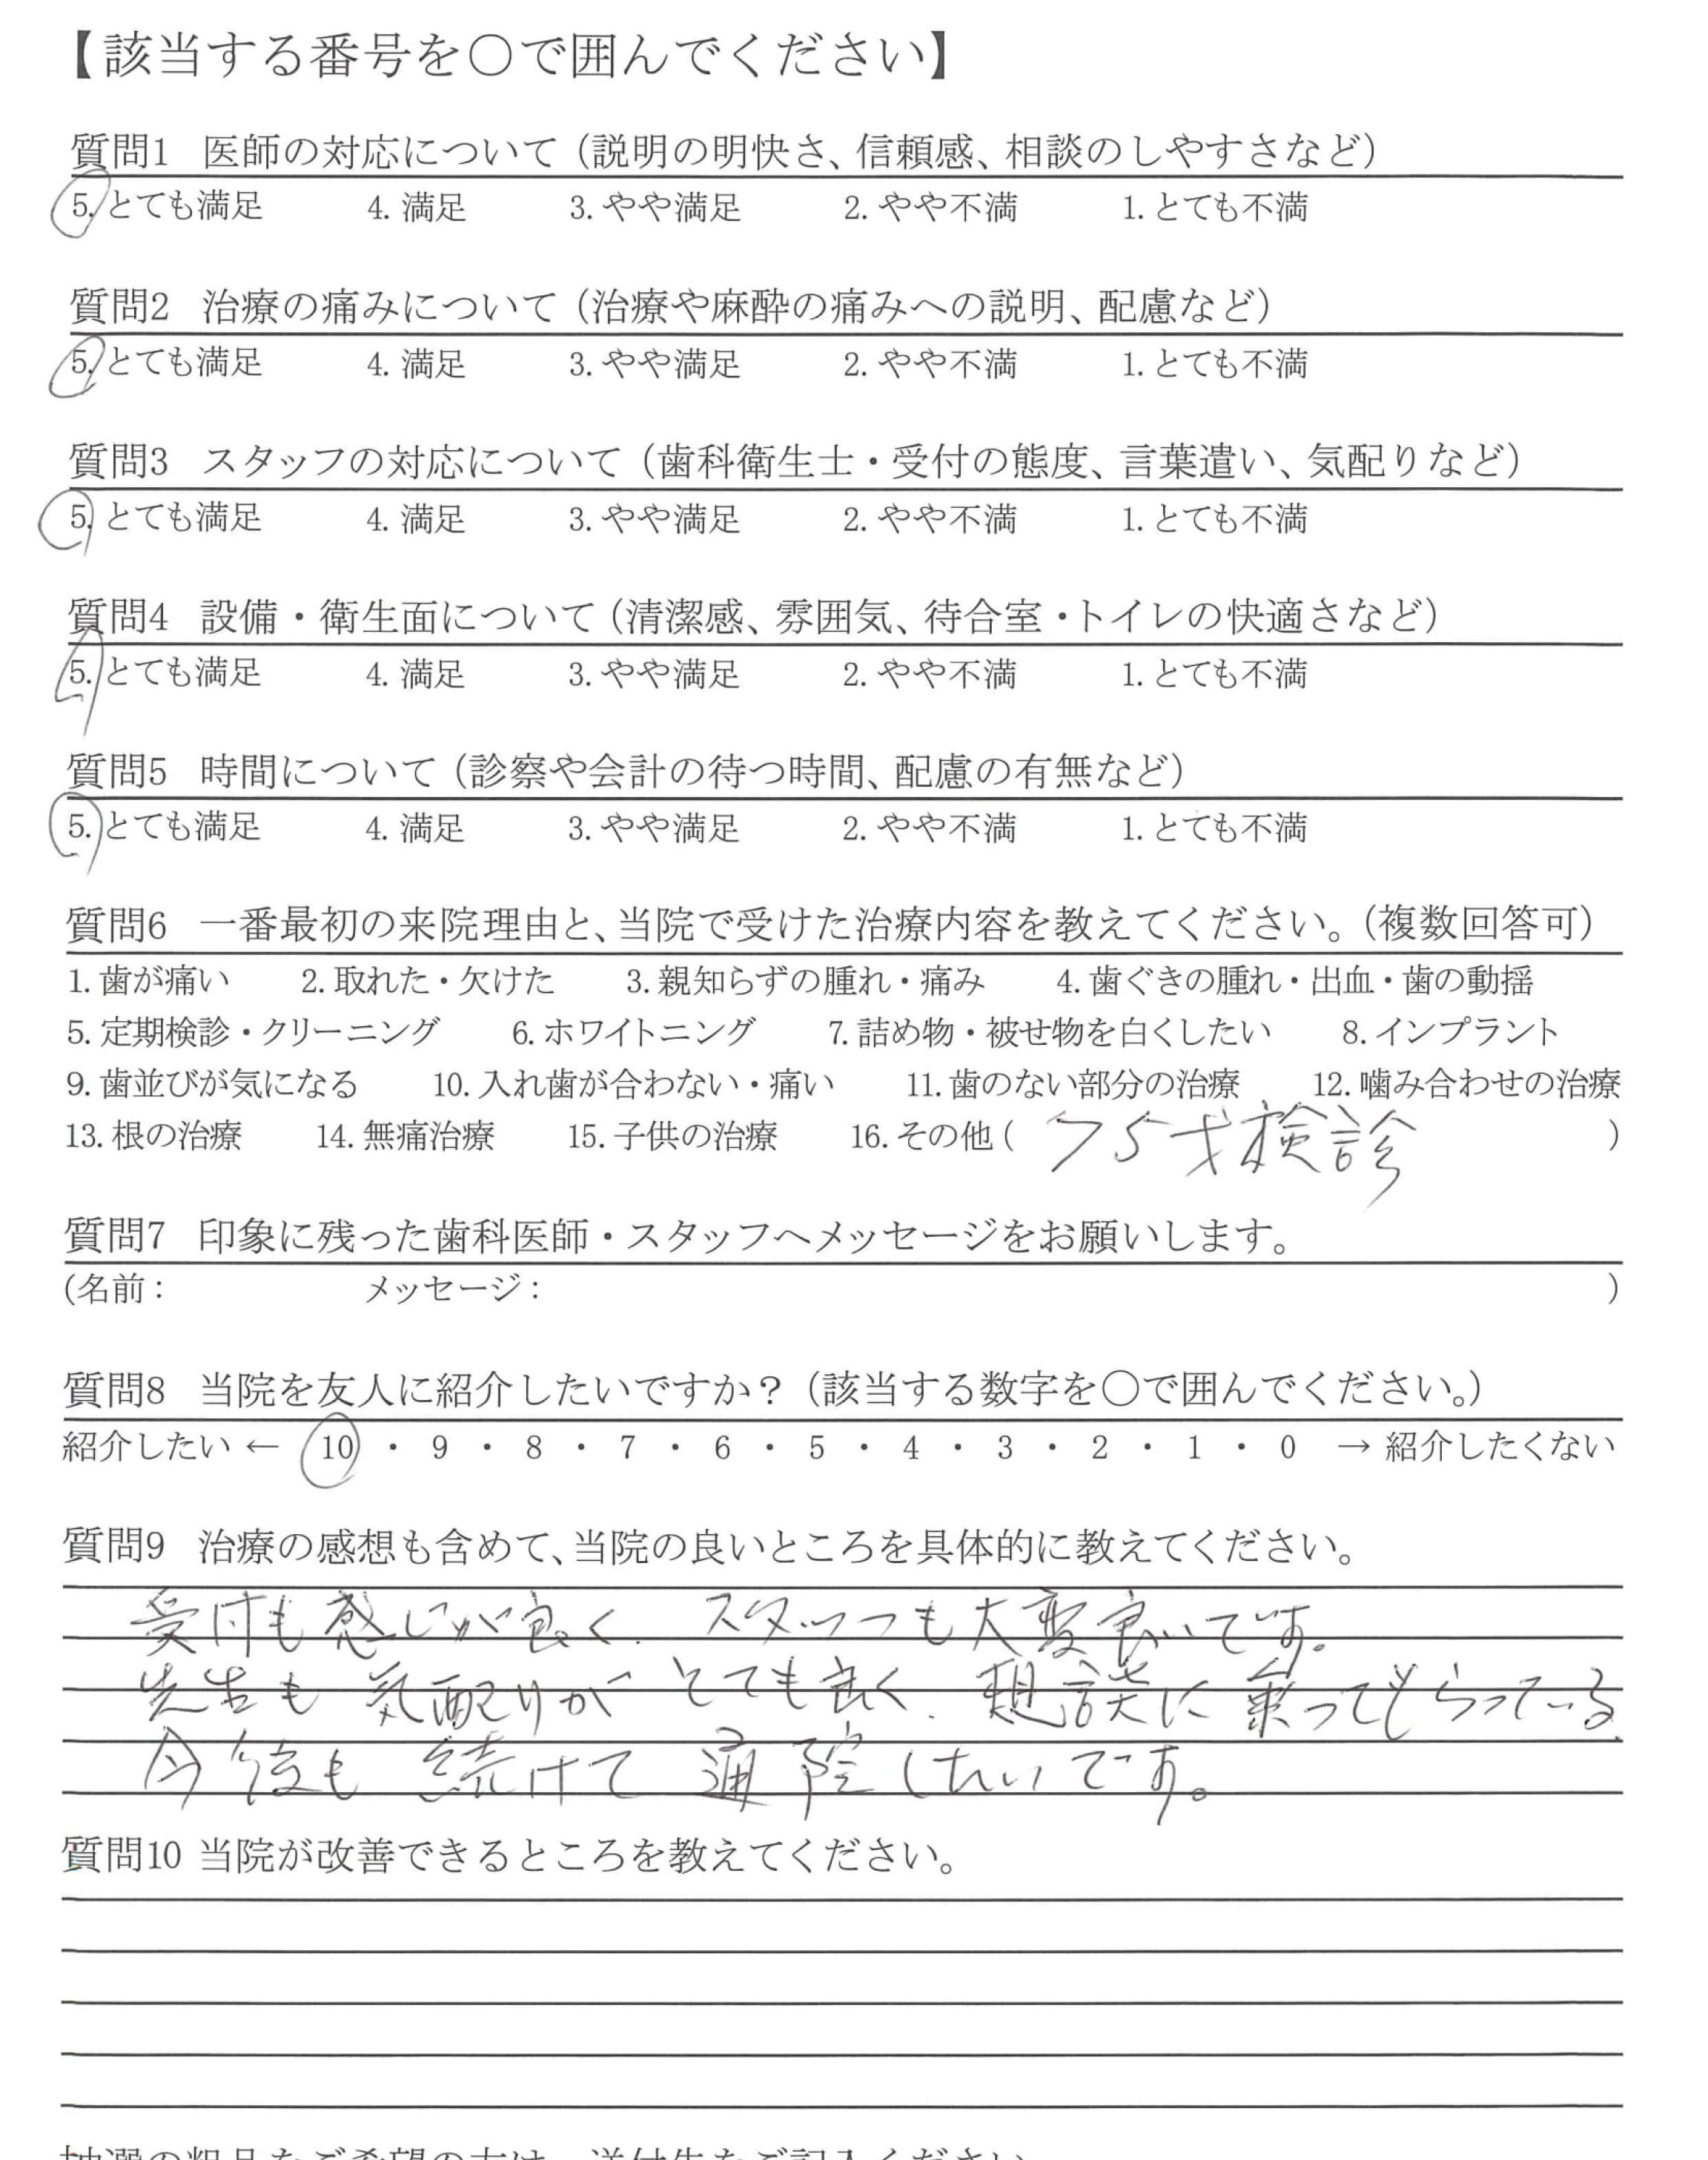 【該当する番号を○で囲んでください】
質問1 医師の対応について（説明の明快さ、信頼感、相談のしやすさなど）
5.とても満足 4.満足 3.やや満足 2.やや不満 1.とても不満
質問2 治療の痛みについて（治療や麻酔の痛みへの説明、配慮など）
5.とても満足 4.満足 3.やや満足 2.やや不満 1.とても不満
質問3 スタッフの対応について（歯科衛生士・受付の態度、言葉遣い、気配りなど）
5.とても満足 4.満足 3.やや満足 2.やや不満 1.とても不満
質問4 設備・衛生面について（清潔感、雰囲気、待合室・トイレの快適さなど）
5.とても満足 4.満足 3.やや満足 2.やや不満 1.とても不満
質問5 時間について（診察や会計の待つ時間、配慮の有無など）
5.とても満足 4.満足 3.やや満足 2.やや不満 1.とても不満
質問6 一番最初の来院理由と、当院で受けた治療内容を教えてください。（複数回答可）
1.歯が痛い 2.取れた・欠けた 3.親知らずの腫れ・痛み 4.歯ぐきの腫れ・出血・歯の動揺
5.定期検診・クリーニング 6.ホワイトニング 7.詰め物・被せ物を白くしたい 8.インプラント
9.歯並びが気になる 10.入れ歯が合わない・痛い 11.歯のない部分の治療 12.噛み合わせの治療
13.根の治療 14.無痛治療 15.子供の治療 16.その他( 75才検診 )
質問7 印象に残った歯科医師・スタッフへメッセージをお願いします。
(名前： メッセージ： )
質問8 当院を友人に紹介したいですか？（該当する数字を○で囲んでください。）
紹介したい ← 10 ・ 9 ・ 8 ・ 7 ・ 6 ・ 5 ・ 4 ・ 3 ・ 2 ・ 1 ・ 0 → 紹介したくない
質問9 治療の感想も含めて、当院の良いところを具体的に教えてください。
受付も感じが良く、スタッフも大変良いです。
先生も気配りがとても良く、相談に乗ってもらっている。
今後も続けて通院したいです。
質問10 当院が改善できるところを教えてください。
抽選の粗品をご希望の方は、送付先をご記入ください